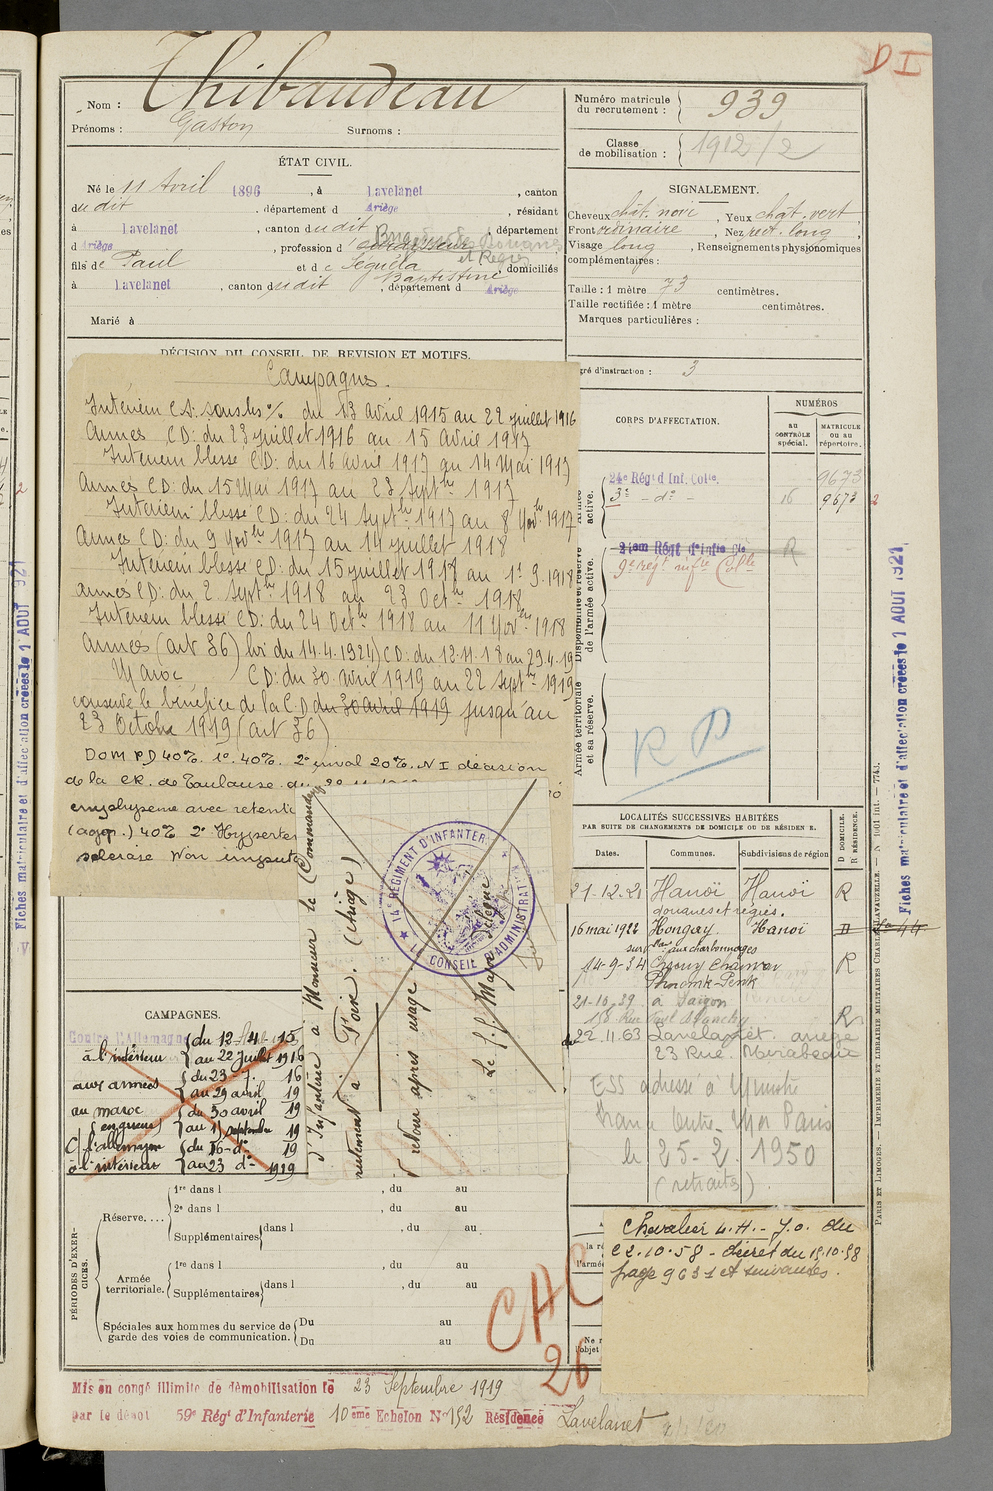 D I
Nom : Thibaudeau
Prénoms : Gaston Surnoms :
Numéro matricule du recrutement : 939
Classe de mobilisation : 1912/2
ÉTAT CIVIL.
Né le 11 Avril 1896, à Lavelanet, canton
dudit, département d Ariège, résidant
à Lavelanet, canton dudit, département
d Ariège, profession d
et Régies
fils de Paul et de Séguéla Baptistine, domiciliés
à Lavelanet, canton dudit, département d Ariège
Marié à
SIGNALEMENT.
Cheveux chât. noir, Yeux chât. vert,
Front ordinaire, Nez rect. long,
Visage long, Renseignements physionomiques
complémentaires :
Taille : 1 mètre 73 centimètres.
Taille rectifiée : 1 mètre centimètres.
Marques particulières :
DÉCISION DU CONSEIL DE REVISION ET MOTIFS.
gré d'instruction : 3
Campagnes.
Intérieur CS. sous les % du 13 avril 1915 au 22 juillet 1916
Armes CD: du 23 juillet 1916 au 15 avril 1917
Intérieur blessé CD: du 16 avril 1917 au 14 Mai 1917
Armes CD: du 15 Mai 1917 au 23 Septbre 1917
Intérieur blessé CD: du 24 Septbre 1917 au 8 Novbre 1917
Armes CD: du 9 Novbre 1917 au 14 juillet 1918
Intérieur blessé CD: du 15 juillet 1918 au 1er 9.1918
Armes CD: du 2 Septbre 1918 au 23 Octbre 1918
Intérieur blessé CD: du 24 Octbre 1918 au 11 Novbre 1918
Armes (art 36) loi du 14.4.1924) CD: du 12.11.18 au 29.4.19
Maroc CD: du 30 avril 1919 au 22 Septbre 1919
conserve le bénéfice de la CD du 30 avril 1919 jusqu'au
23 Octobre 1919 (art 36)
DOM P.D 40%. 1° 40%. 2° inval 20%. N I décision
de la CR. de Toulouse du
emphyseme avec retenti
(agg.) 40% 2° Hyperten
scléraire Non imputa
CORPS D'AFFECTATION.
NUMÉROS
au CONTRÔLE spécial.
MATRICULE ou au répertoire.
Armée active.
24e Régt d'Inf. Colle. 9673
3e - do - 16 9673 2
Disponibilité et réserve de l'armée active.
21em Régt d'Infie Cle R
9e régt infie Colle
Armée territoriale et sa réserve.
R D
LOCALITÉS SUCCESSIVES HABITÉES
PAR SUITE DE CHANGEMENTS DE DOMICILE OU DE RÉSIDENCE.
Dates. Communes. Subdivisions de région
D DOMICILE. R RÉSIDENCE.
21-12-21 Hanoï Hanoï R
douanes et régies.
16 mai 1922 Hongay. Hanoï D
surv. aux charbonnages
14-9-34 R
Phnomh-Penh
21-10-39 à Saïgon
R
22.11.63 Lavelanet. ariège
23 Rue. Mirabeau
ESS adressé à Ministre
France Outre-Mer Paris
le 25-2-1950
(retraité)
Monsieur le Commandant
d'Infanterie à
recrutement à Foix. (Ariège)
retour après usage
Le Major
14e RÉGIMENT D'INFANTERIE
LE CONSEIL D'ADMINISTRATION
CAMPAGNES.
Contre l'Allemagne
à l'intérieur du 12-4-15
au 22 juillet 1916
aux armées du 23-7-16
au 29 avril 19
au maroc du 30 avril 19
(en guerre) au 15 septembre 19
C/ l'allemagne du 16-do- 19
à l'intérieur au 23 do- 1919
PÉRIODES D'EXERCICES.
Réserve.... 1re dans l , du au
2e dans l , du au
Supplémentaires dans l , du au
Armée territoriale. 1re dans l , du au
Supplémentaires dans l , du au
Spéciales aux hommes du service de garde des voies de communication. Du au
Du au
CAC
26
Chevalier L.H. - J.O. du
22.10.58 - décret du 19.10.58
page 9631 et suivantes.
Mis en congé illimité de démobilisation le 23 Septembre 1919
par le dépôt 59e Régt d'Infanterie 10ème Echelon No 192 Résidence Lavelanet
Fiches matriculaire et d'affectation créées le 1 AOUT 1921
Fiches matriculaire et d'affectation créées le 1 AOUT 1921
PARIS ET LIMOGES. — IMPRIMERIE ET LIBRAIRIE MILITAIRES CHARLES-LAVAUZELLE. — N° 1001 int. — 7743.